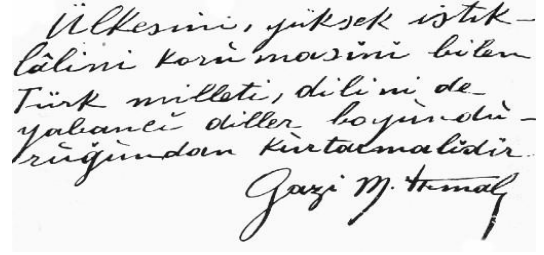 Ülkesini, yüksek istik-
lâlini korumasını bilen
Türk milleti, dilini de
yabancı diller boyundu-
ruğundan kurtarmalıdır
Gazi M. Kemal